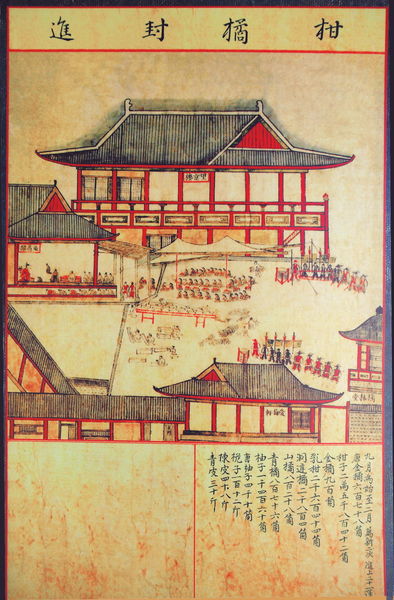 柑橘封進
望京樓
橘林堂
九月為始至二月 薦新二次 進上二十一運
唐金橘六百七十八箇
柑子二萬五千八百四十二箇
金橘九百箇
乳柑二千六百四十四箇
洞庭橘二千八百四箇
山橘八百二十八箇
青橘八百七十六箇
柚子一千四百六十箇
唐柚子四千十箇
梔子一百十二斤
陳皮四十八斤
青皮三十斤